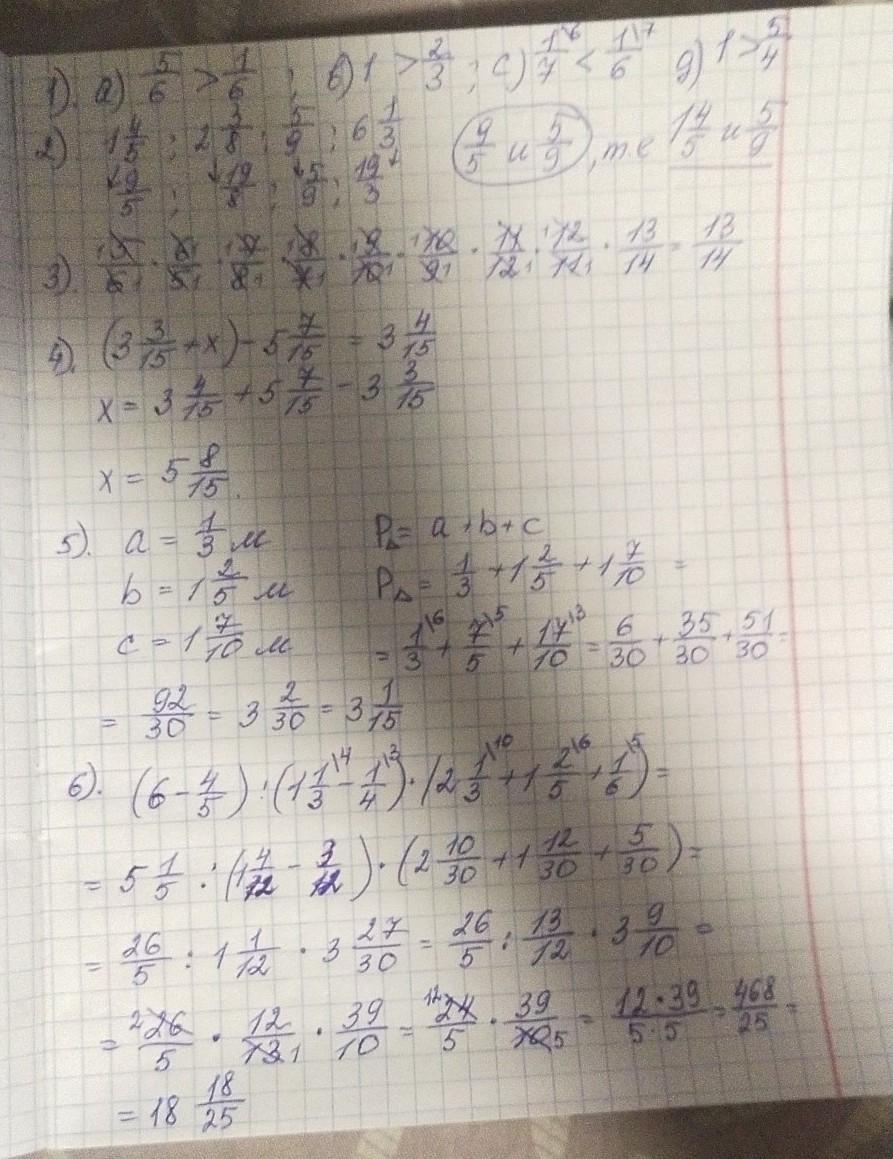 1). а) 5/6 > 1/6 ; в) 1 > 2/3 ; с) 1\6/7 < 1\7/6 д) 1 > 5/4
2) 1 4/5 ; 2 3/8 ; 5/9 ; 6 1/3 (9/5 и 5/9), т.е 1 4/5 и 5/9
↓9/5 ; ↓19/8 ; ↓5/9 ; 19/3↓
3). 5/6 · 6/5 · 7/8 · 8/7 · 9/10 · 10/9 · 11/12 · 12/11 · 13/14 = 13/14
4). (3 3/15 + x) - 5 7/15 = 3 4/15
x = 3 4/15 + 5 7/15 - 3 3/15
x = 5 8/15.
5). a = 1/3 м P△ = a + b + c
b = 1 2/5 м P△ = 1/3 + 1 2/5 + 1 7/10 =
c = 1 7/10 м = 1\6/3 + 7\5/5 + 17\3/10 = 6/30 + 35/30 + 51/30 =
= 92/30 = 3 2/30 = 3 1/15
6). (6 - 4/5) : (1 1\4/3 - 1\3/4) · (2 1\10/3 + 1 2\6/5 + 1\5/6) =
= 5 1/5 : (1 4/12 - 3/12) · (2 10/30 + 1 12/30 + 5/30) =
= 26/5 : 1 1/12 · 3 27/30 = 26/5 : 13/12 · 3 9/10 =
= 2 26/5 · 12/13 1 · 39/10 = 12 24/5 · 39/10 5 = 12·39/5·5 = 468/25 =
= 18 18/25